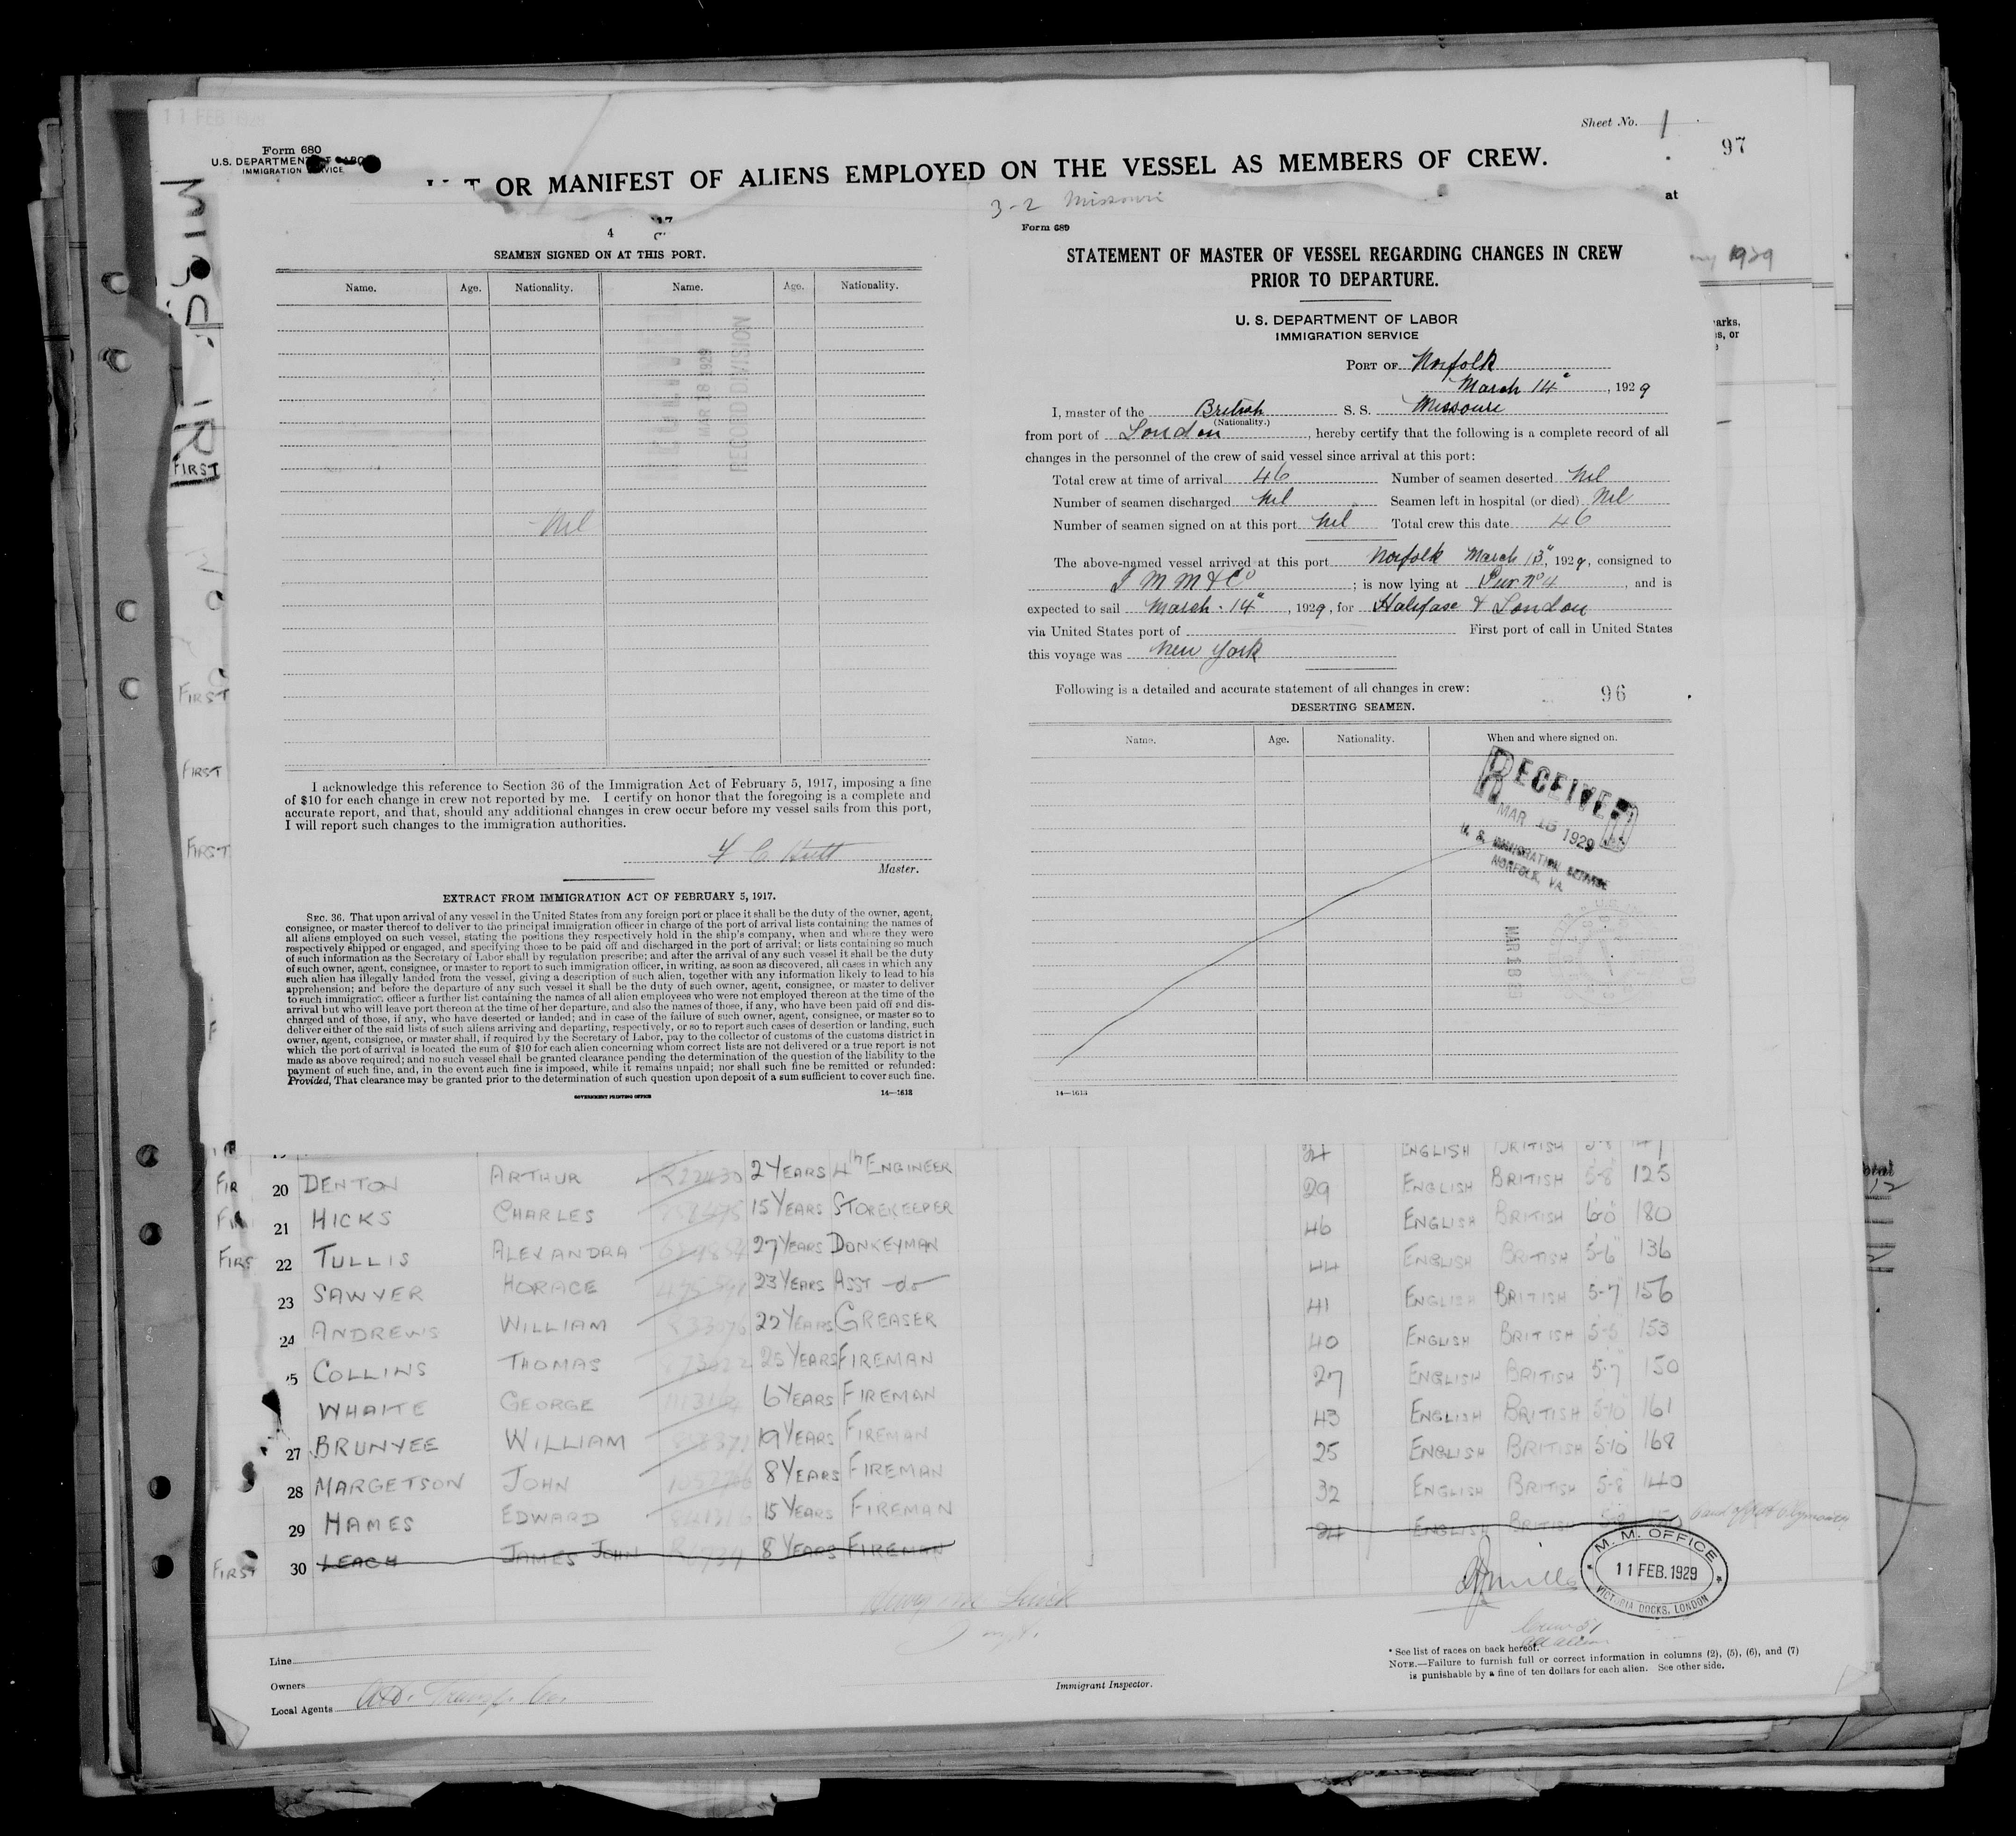 Sheet No. 1
97
Form 680
U.S. DEPARTMENT
IMMIGRATION SERVICE
OR MANIFEST OF ALIENS EMPLOYED ON THE VESSEL AS MEMBERS OF CREW.
at
1929
arks,
s, or
FIRST
FIRST
FIRST
FIRST
4
SEAMEN SIGNED ON AT THIS PORT.
Name. Age. Nationality. Name. Age. Nationality.
MAR 18 1929
RECORD DIVISION
Nil
I acknowledge this reference to Section 36 of the Immigration Act of February 5, 1917, imposing a fine
of $10 for each change in crew not reported by me. I certify on honor that the foregoing is a complete and
accurate report, and that, should any additional changes in crew occur before my vessel sails from this port,
I will report such changes to the immigration authorities.
Master.
EXTRACT FROM IMMIGRATION ACT OF FEBRUARY 5, 1917.
SEC. 36. That upon arrival of any vessel in the United States from any foreign port or place it shall be the duty of the owner, agent,
consignee, or master thereof to deliver to the principal immigration officer in charge of the port of arrival lists containing the names of
all aliens employed on such vessel, stating the positions they respectively hold in the ship's company, when and where they were
respectively shipped or engaged, and specifying those to be paid off and discharged in the port of arrival; or lists containing so much
of such information as the Secretary of Labor shall by regulation prescribe; and after the arrival of any such vessel it shall be the duty
of such owner, agent, consignee, or master to report to such immigration officer, in writing, as soon as discovered, all cases in which any
such alien has illegally landed from the vessel, giving a description of such alien, together with any information likely to lead to his
apprehension; and before the departure of any such vessel it shall be the duty of such owner, agent, consignee, or master to deliver
to such immigration officer a further list containing the names of all alien employees who were not employed thereon at the time of the
arrival but who will leave port thereon at the time of her departure, and also the names of those, if any, who have been paid off and dis-
charged and of those, if any, who have deserted or landed; and in case of the failure of such owner, agent, consignee, or master so to
deliver either of the said lists of such aliens arriving and departing, respectively, or so to report such cases of desertion or landing, such
owner, agent, consignee, or master shall, if required by the Secretary of Labor, pay to the collector of customs of the customs district in
which the port of arrival is located the sum of $10 for each alien concerning whom correct lists are not delivered or a true report is not
made as above required; and no such vessel shall be granted clearance pending the determination of the question of the liability to the
payment of such fine, and, in the event such fine is imposed, while it remains unpaid; nor shall such fine be remitted or refunded:
Provided, That clearance may be granted prior to the determination of such question upon deposit of a sum sufficient to cover such fine.
GOVERNMENT PRINTING OFFICE 14—1613
3-2 Missouri
Form 689
STATEMENT OF MASTER OF VESSEL REGARDING CHANGES IN CREW
PRIOR TO DEPARTURE.
U. S. DEPARTMENT OF LABOR
IMMIGRATION SERVICE
PORT OF Norfolk
March 14", 1929
I, master of the British S. S. Missouri
(Nationality.)
from port of London, hereby certify that the following is a complete record of all
changes in the personnel of the crew of said vessel since arrival at this port:
Total crew at time of arrival 46 Number of seamen deserted Nil
Number of seamen discharged Nil Seamen left in hospital (or died) Nil
Number of seamen signed on at this port Nil Total crew this date 46
The above-named vessel arrived at this port Norfolk March 13", 1929, consigned to
I M M & Co; is now lying at Pier No 4, and is
expected to sail March 14", 1929, for Halifax & London
via United States port of First port of call in United States
this voyage was New York
Following is a detailed and accurate statement of all changes in crew:
96
DESERTING SEAMEN.
Name. Age. Nationality. When and where signed on.
RECEIVED
MAR 16 1929
U. S. IMMIGRATION SERVICE
NORFOLK, VA.
MAR 18
14—1613
ENGLISH BRITISH 5-8
20 DENTON ARTHUR 2 YEARS 4th ENGINEER 29 ENGLISH BRITISH 5-8 125
21 HICKS CHARLES 15 YEARS STOREKEEPER 46 ENGLISH BRITISH 6-0 180
FIRS 22 TULLIS ALEXANDRA 27 YEARS DONKEYMAN 44 ENGLISH BRITISH 5-6 136
23 SAWYER HORACE 23 YEARS ASST -do- 41 ENGLISH BRITISH 5-7 156
24 ANDREWS WILLIAM 22 YEARS GREASER 40 ENGLISH BRITISH 5-5 153
5 COLLINS THOMAS 25 YEARS FIREMAN 27 ENGLISH BRITISH 5-7 150
WHAITE GEORGE 6 YEARS FIREMAN 43 ENGLISH BRITISH 5-10 161
27 BRUNYEE WILLIAM 19 YEARS FIREMAN 25 ENGLISH BRITISH 5-10 168
28 MARGETSON JOHN 8 YEARS FIREMAN 32 ENGLISH BRITISH 5-8 140
29 HAMES EDWARD 15 YEARS FIREMAN 24 ENGLISH BRITISH
FIRST 30 LEACH JAMES JOHN 8 YEARS FIREMAN
M. M. OFFICE
11 FEB. 1929
VICTORIA DOCKS, LONDON
Line
Owners
Local Agents
Immigrant Inspector.
* See list of races on back hereof.
NOTE.—Failure to furnish full or correct information in columns (2), (5), (6), and (7)
is punishable by a fine of ten dollars for each alien. See other side.